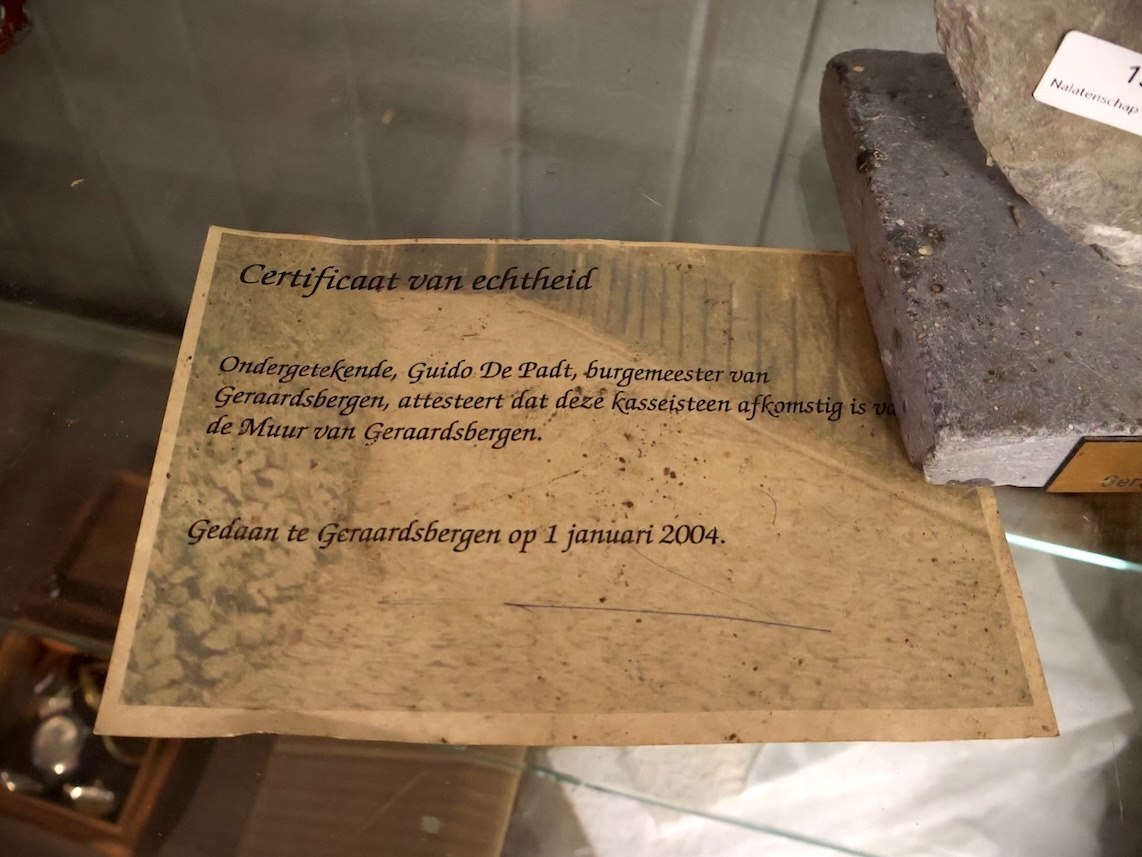 Certificaat van echtheid
Ondergetekende, Guido De Padt, burgemeester van
Geraardsbergen, attesteert dat deze kasseisteen afkomstig is
de Muur van Geraardsbergen.
Gedaan te Geraardsbergen op 1 januari 2004.
Nalatenschap